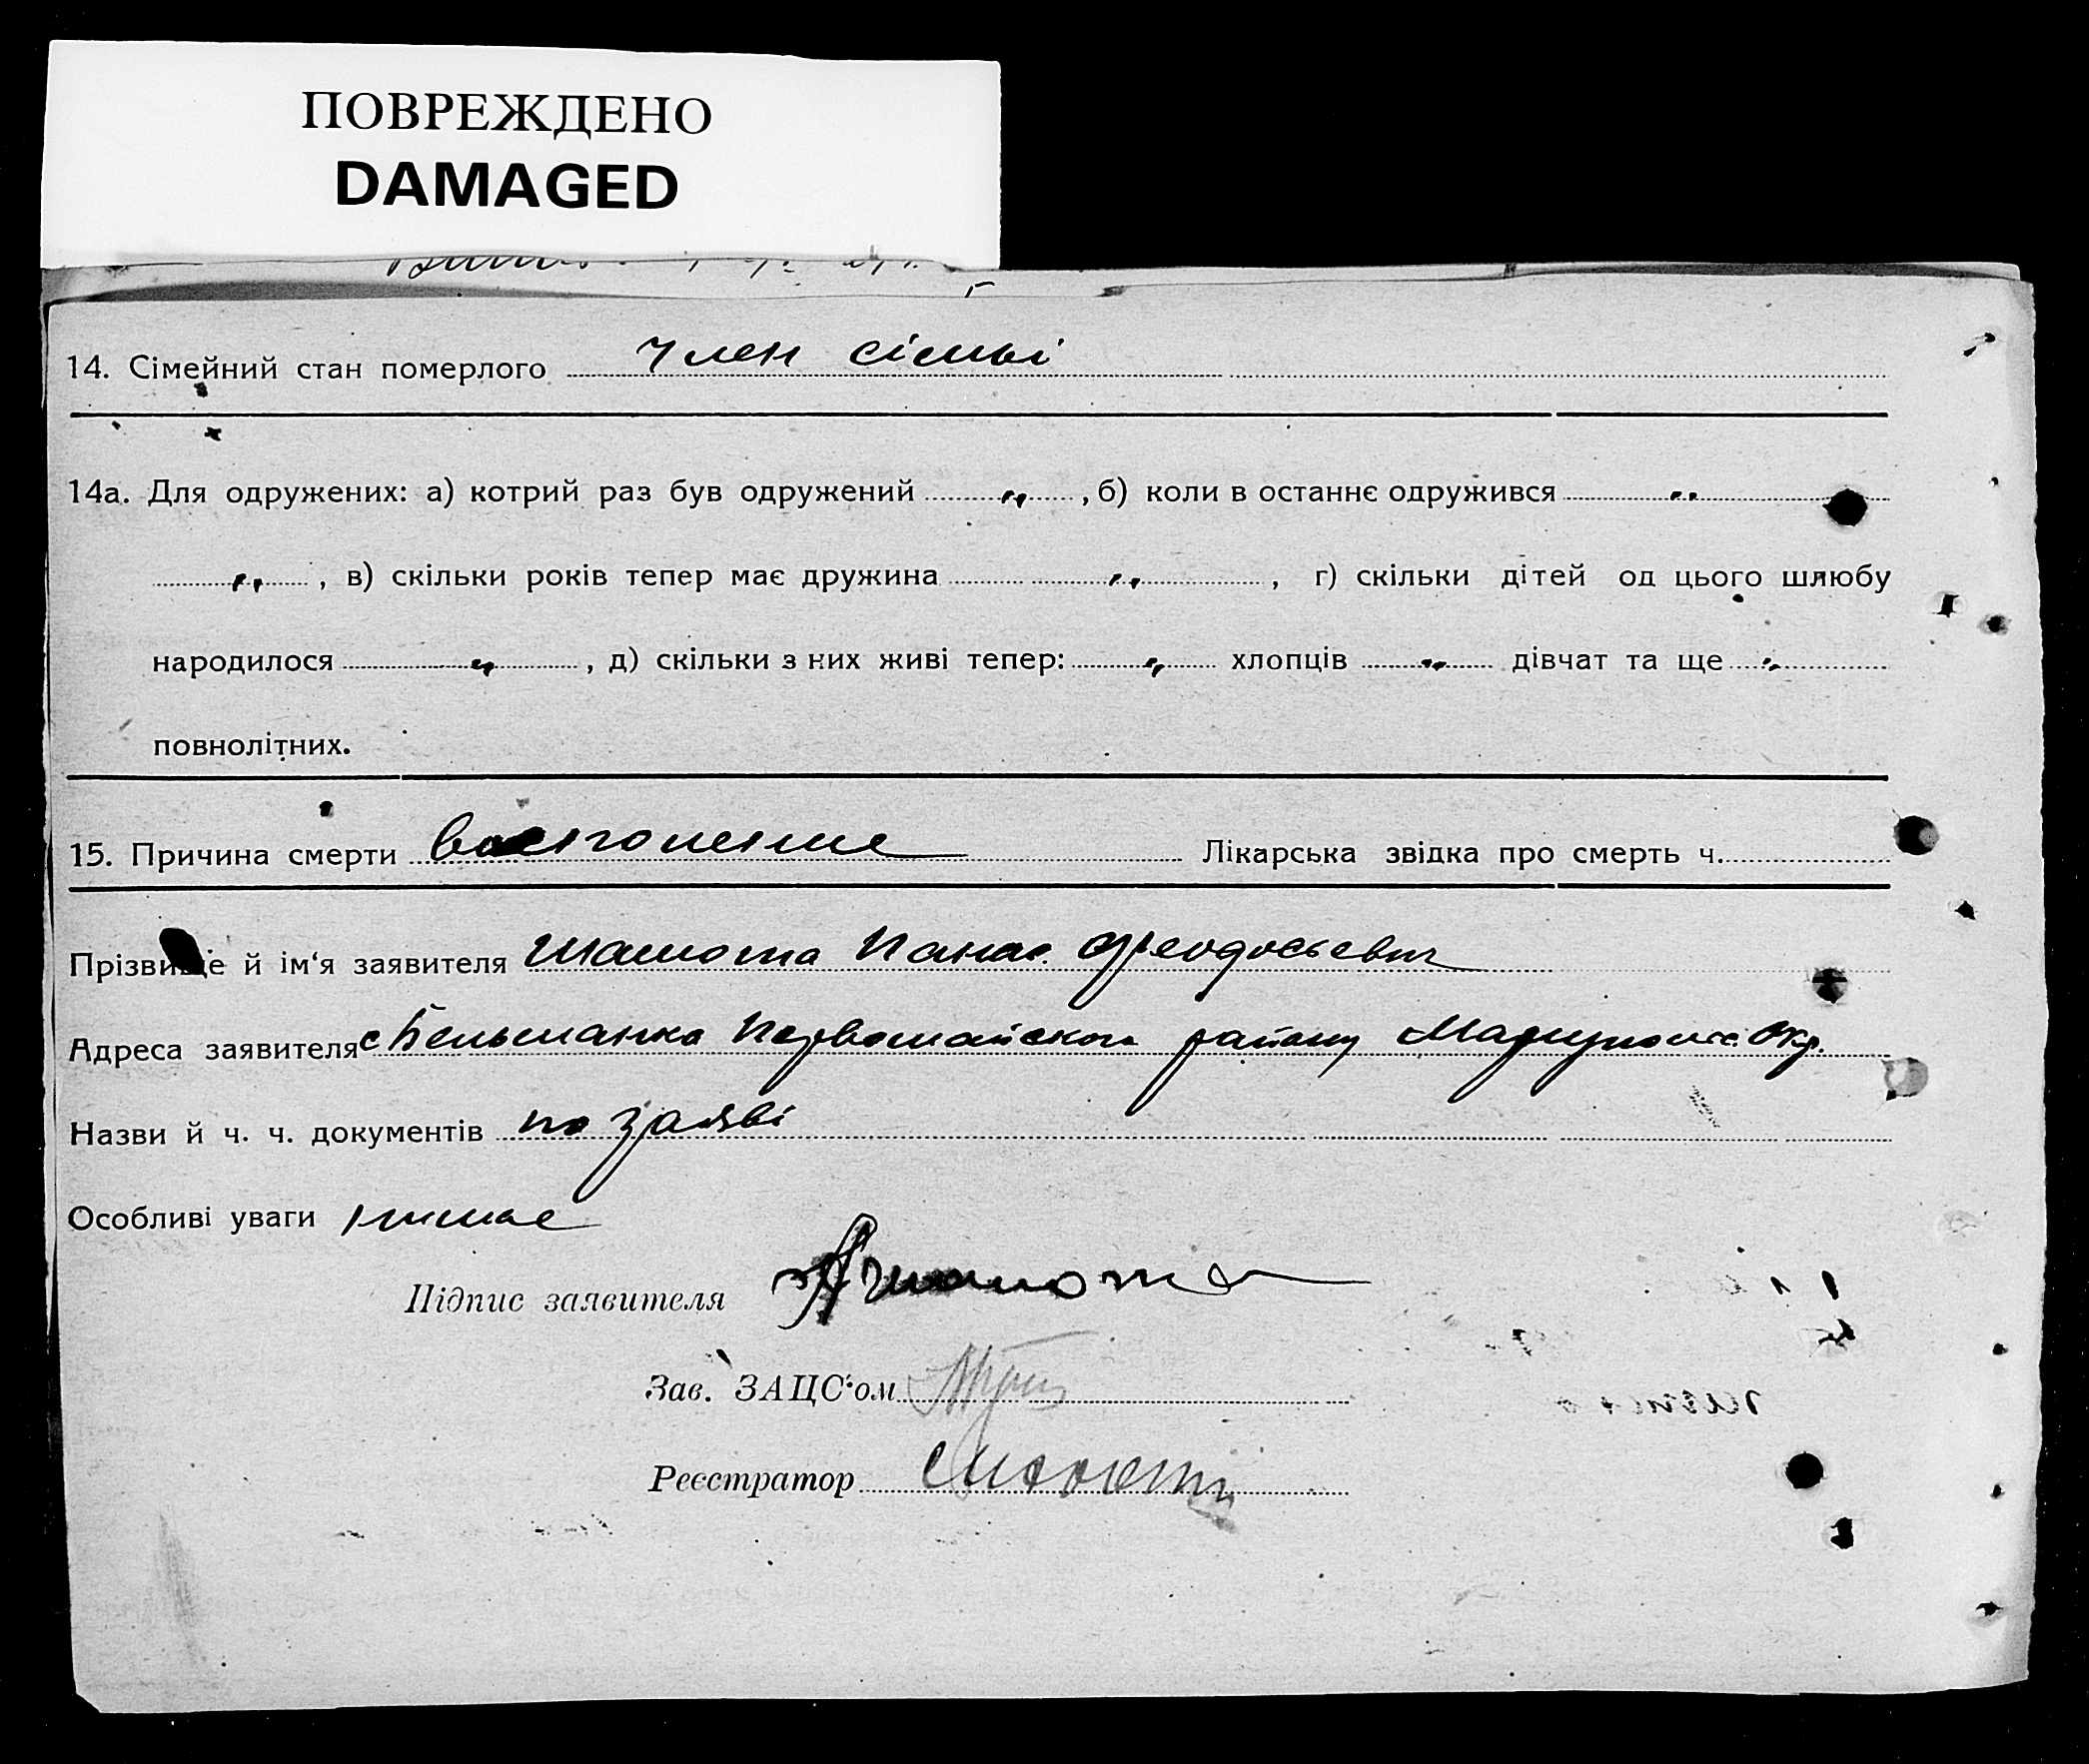 ПОВРЕЖДЕНО
DAMAGED
14. Сімейний стан померлого член сімьі
14а. Для одружених: а) котрий раз був одружений „ , б) коли в останнє одружився „
„ , в) скільки років тепер має дружина „ , г) скільки дітей од цього шлюбу
народилося „ , д) скільки з них живі тепер: „ хлопців „ дівчат та ще „
повнолітних.
15. Причина смерти Лікарська звідка про смерть ч.
Прізвище й ім‘я заявителя Шамота Панас Феодосьевич
Адреса заявителя с Бельманка Первомайского району Мариупольс. Окр.
Назви й ч. ч. документів по заяві
Особливі уваги немае
Підпис заявителя Ашамота
Зав. ЗАЦС‘ом
Реєстратор